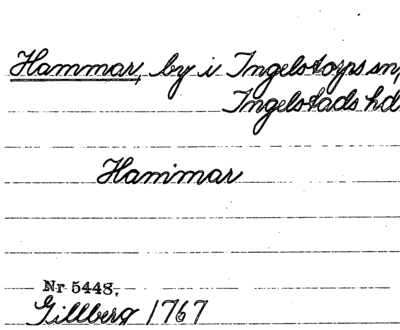 Hammar, by i Ingelstorps sn,
Ingelstads hd
Hammar
Nr 5448.
Gillberg 1767